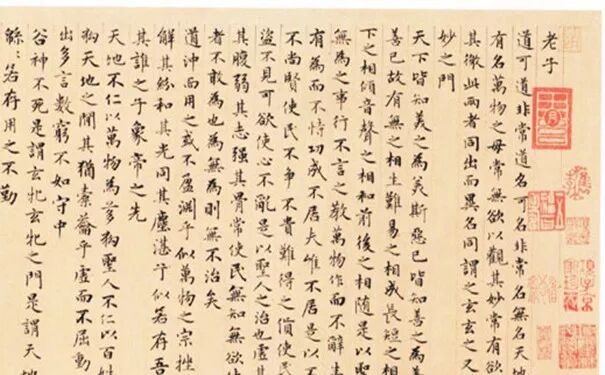 老子
道可道非常道名可名非常名無名天地
有名萬物之母常無欲以觀其妙常有欲
其徼此兩者同出而異名同謂之玄玄之又
妙之門
天下皆知美之為美斯惡已皆知善之為善
善已故有無之相生難易之相成長短之相
下之相傾音聲之相和前後之相隨是以聖
無為之事行不言之教萬物作而不辭生
有為而不恃功成不居夫惟不居是以不
不尚賢使民不爭不貴難得之貨使民
盜不見可欲使心不亂是以聖人之治也虛其
其腹弱其志强其骨常使民無知無欲使
者不敢為也為無為則無不治矣
道沖而用之或不盈淵乎似萬物之宗挫
解其紛和其光同其塵湛乎似若存吾
其誰之子象帝之先
天地不仁以萬物為芻狗聖人不仁以百姓
狗天地之間其猶橐籥乎虛而不屈動
出多言數窮不如守中
谷神不死是謂玄牝玄牝之門是謂天地
綿〻若存用之不勤